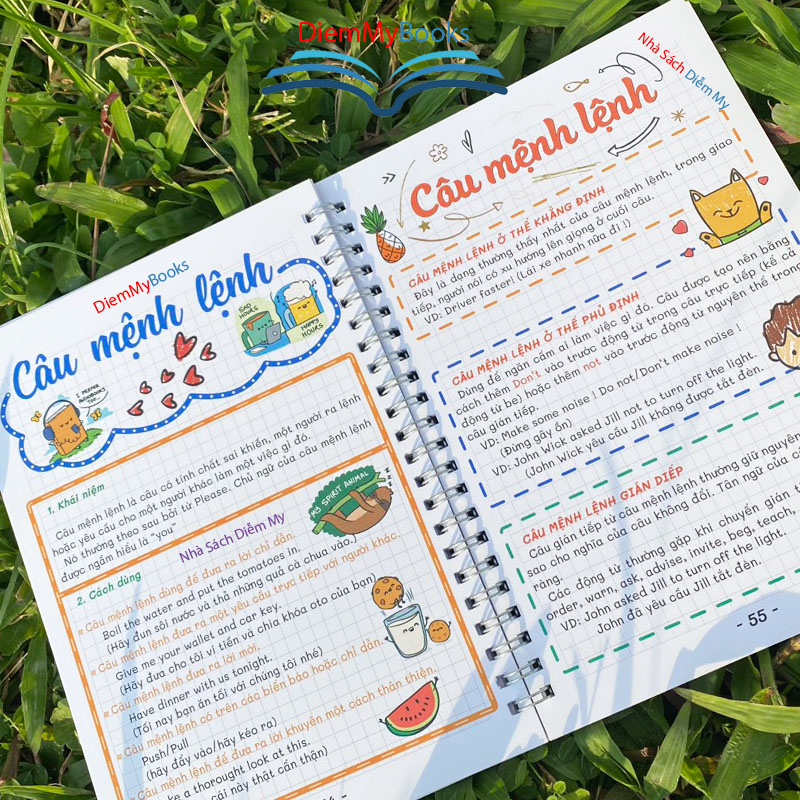 DiemMyBooks
Nhà Sách Diễm My
DiemMyBooks
Câu mệnh lệnh
SAD HOURS
HAPPY HOURS
I PREFER AUDIOBOOKS TOO...
1. Khái niệm
Câu mệnh lệnh là câu có tính chất sai khiến, một người ra lệnh
hoặc yêu cầu cho một người khác làm một việc gì đó.
Nó thường theo sau bởi từ Please. Chủ ngữ của câu mệnh lệnh
được ngầm hiểu là "you"
MY SPIRIT ANIMAL
Nhà Sách Diễm My
2. Cách dùng
Câu mệnh lệnh dùng để đưa ra lời chỉ dẫn.
Boil the water and put the tomatoes in.
(Hãy đun sôi nước và thả những quả cà chua vào.)
Câu mệnh lệnh đưa ra một yêu cầu trực tiếp với người khác.
Give me your wallet and car key.
(Hãy đưa cho tôi ví tiền và chìa khóa oto của bạn)
Câu mệnh lệnh đưa ra lời mời.
Have dinner with us tonight.
(Tối nay bạn ăn tối với chúng tôi nhé)
Câu mệnh lệnh có trên các biển báo hoặc chỉ dẫn.
Push/Pull
(hãy đẩy vào/hãy kéo ra)
Câu mệnh lệnh để đưa ra lời khuyên một cách thân thiện.
a thorought look at this.
cái này thật cẩn thận)
Câu mệnh lệnh
CÂU MỆNH LỆNH Ở THỂ KHẲNG ĐỊNH
Đây là dạng thường thấy nhất của câu mệnh lệnh, trong giao
tiếp, người nói có xu hướng lên giọng ở cuối câu.
VD: Driver faster! (Lái xe nhanh nữa đi !)
CÂU MỆNH LỆNH Ở THỂ PHỦ ĐỊNH
Dùng để ngăn cấm ai làm việc gì đó. Câu được tạo nên bằng
cách thêm Don't vào trước động từ trong câu trực tiếp (kể cả
động từ be) hoặc thêm not vào trước động từ nguyên thể trong
câu gián tiếp.
VD: Make some noise ! Do not/Don't make noise !
(Đừng gây ồn)
VD: John Wick asked Jill not to turn off the light.
(John Wick yêu cầu Jill không được tắt đèn.
CÂU MỆNH LỆNH GIÁN DIẾP
Câu gián tiếp từ câu mệnh lệnh thường giữ nguyên
sao cho nghĩa của câu không đổi. Tân ngữ của câ
ràng.
Các động từ thường gặp khi chuyển gián t
order, warn, ask, advise, invite, beg, teach,
VD: John asked Jill to turn off the light.
John đã yêu cầu Jill tắt đèn.
- 55 -